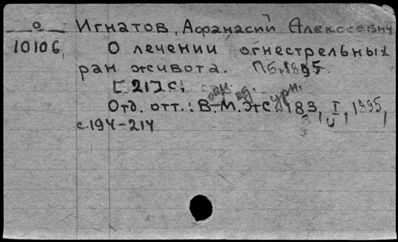 О
10106
Игнатов, Афанасий Алексеевич
О лечении огнестрельных
ран живота. Пб, 1895
[21] с.
Отд. отт.: В.-М. Ж. 183, I, 1895,
с. 194-214